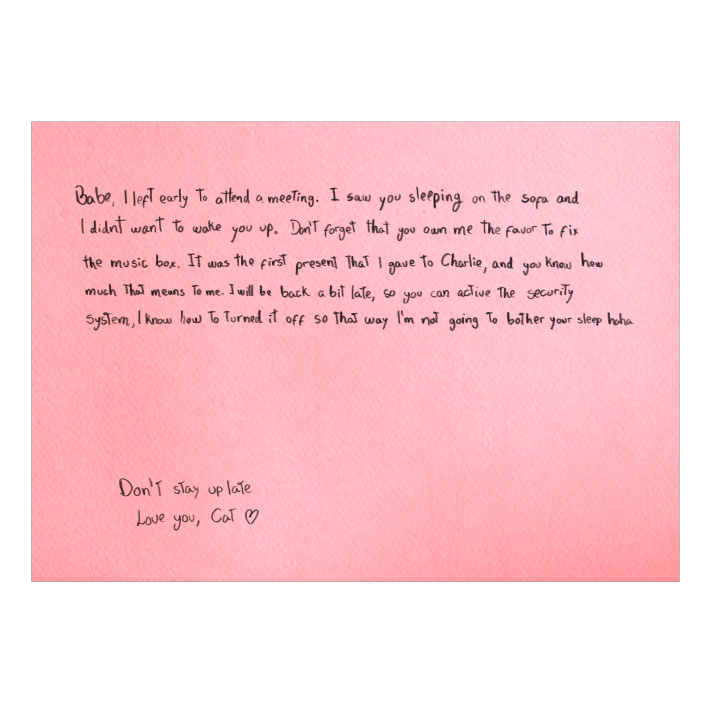 Babe, I left early to attend a meeting. I saw you sleeping on the sofa and
I didn't want to wake you up. Don't forget that you own me the favor to fix
the music box. It was the first present that I gave to Charlie, and you know how
much that means to me. I will be back a bit late, so you can active the security
system, I know how to turned it off so that way I'm not going to bother your sleep haha
Don't stay up late
Love you, Cat ♡